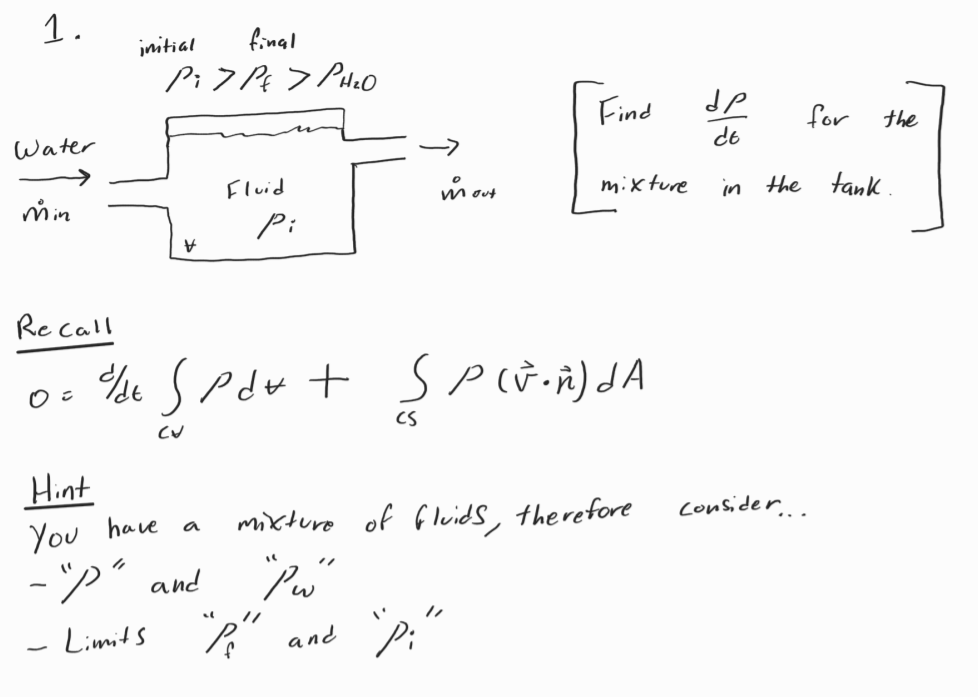 1.
initial final
ρi > ρf > ρH₂O
Water
ṁ in
Fluid
ρi
∀
ṁ out
[Find dρ/dt for the
mixture in the tank.]
Recall
0 = d/dt ∫CV ρ d∀ + ∫CS ρ (v⃗ · n⃗) dA
Hint
You have a mixture of fluids, therefore consider...
- "ρ" and "ρw"
- Limits "ρf" and "ρi"